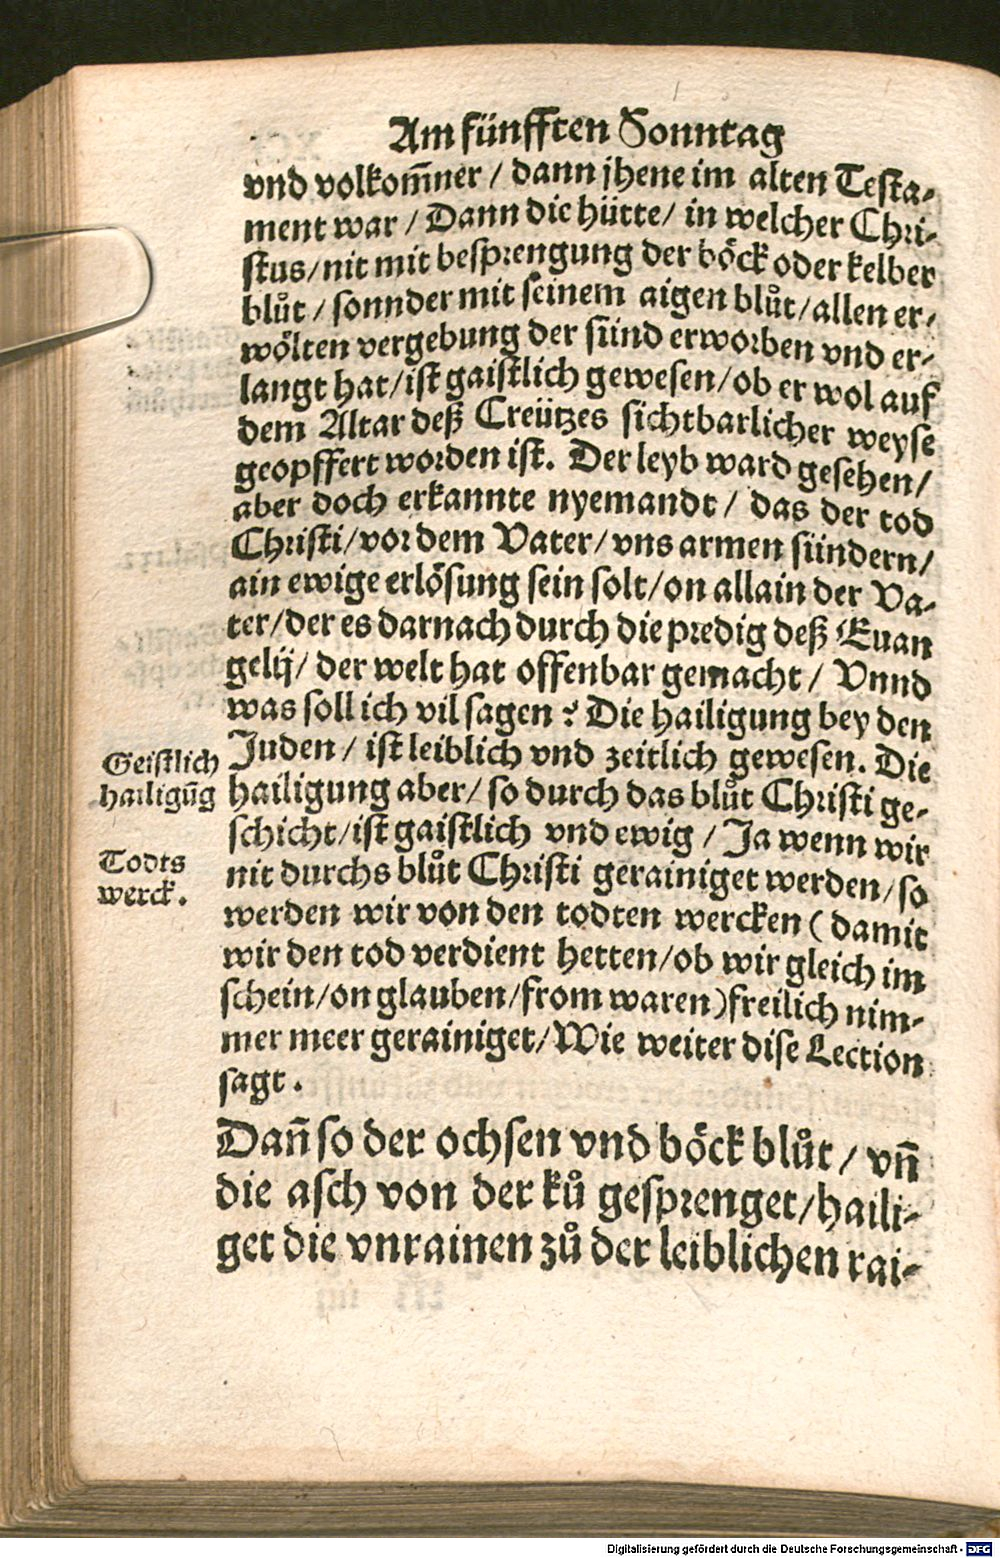 Am fünfften Sonntag
vnd volkom̃ner / dann jhene im alten Testa-
ment war / Dann die hütte / in welcher Chri-
stus / nit mit besprengung der böck oder kelber
blůt / sonnder mit seinem aigen blůt / allen er-
wölten vergebung der sünd erworben vnd er-
langt hat / ist gaistlich gewesen / ob er wol auf
dem Altar deß Creützes sichtbarlicher weyse
geopffert worden ist. Der leyb ward gesehen /
aber doch erkannte nyemandt / das der tod
Christi / vor dem Vater / vns armen sündern /
ain ewige erlösung sein solt / on allain der Va-
ter / der es darnach durch die predig deß Euan
gelij / der welt hat offenbar gemacht / Vnnd
was soll ich vil sagen ? Die hailigung bey den
Juden / ist leiblich vnd zeitlich gewesen. Die
Geistlich
hailigũg
hailigung aber / so durch das blůt Christi ge-
schicht / ist gaistlich vnd ewig / Ja wenn wir
Todts
werck.
nit durchs blůt Christi gerainiget werden / so
werden wir von den todten wercken ( damit
wir den tod verdient hetten / ob wir gleich im
schein / on glauben / from waren ) freilich nim-
mer meer gerainiget / Wie weiter dise Lection
sagt.
Dañ so der ochsen vnd böck blůt / vñ
die asch von der ků gesprenget / haili-
get die vnrainen zů der leiblichen rai-
Digitalisierung gefördert durch die Deutsche Forschungsgemeinschaft - DFG